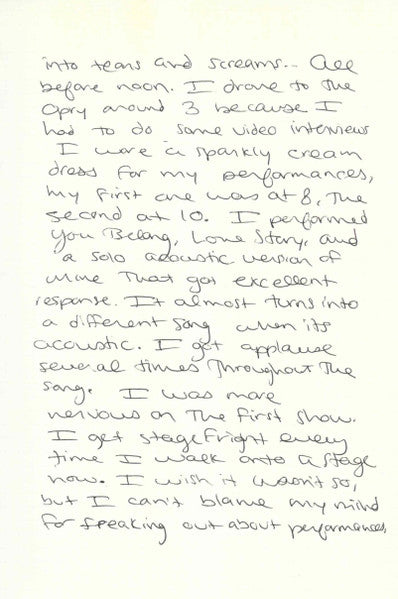 into tears and screams... All
before noon. I drove to the
Opry around 3 because I
had to do some video interviews
I wore a sparkly cream
dress for my performances,
my first one was at 8, the
second at 10. I performed
You Belong, Love Story, and
a solo acoustic version of
Mine that got excellent
response. It almost turns into
a different song when its
acoustic. I got applause
several times throughout the
song. I was more
nervous on the first show.
I get stagefright every
time I walk onto a stage
now. I wish it wasn't so,
but I can't blame my mind
for freaking out about performances,